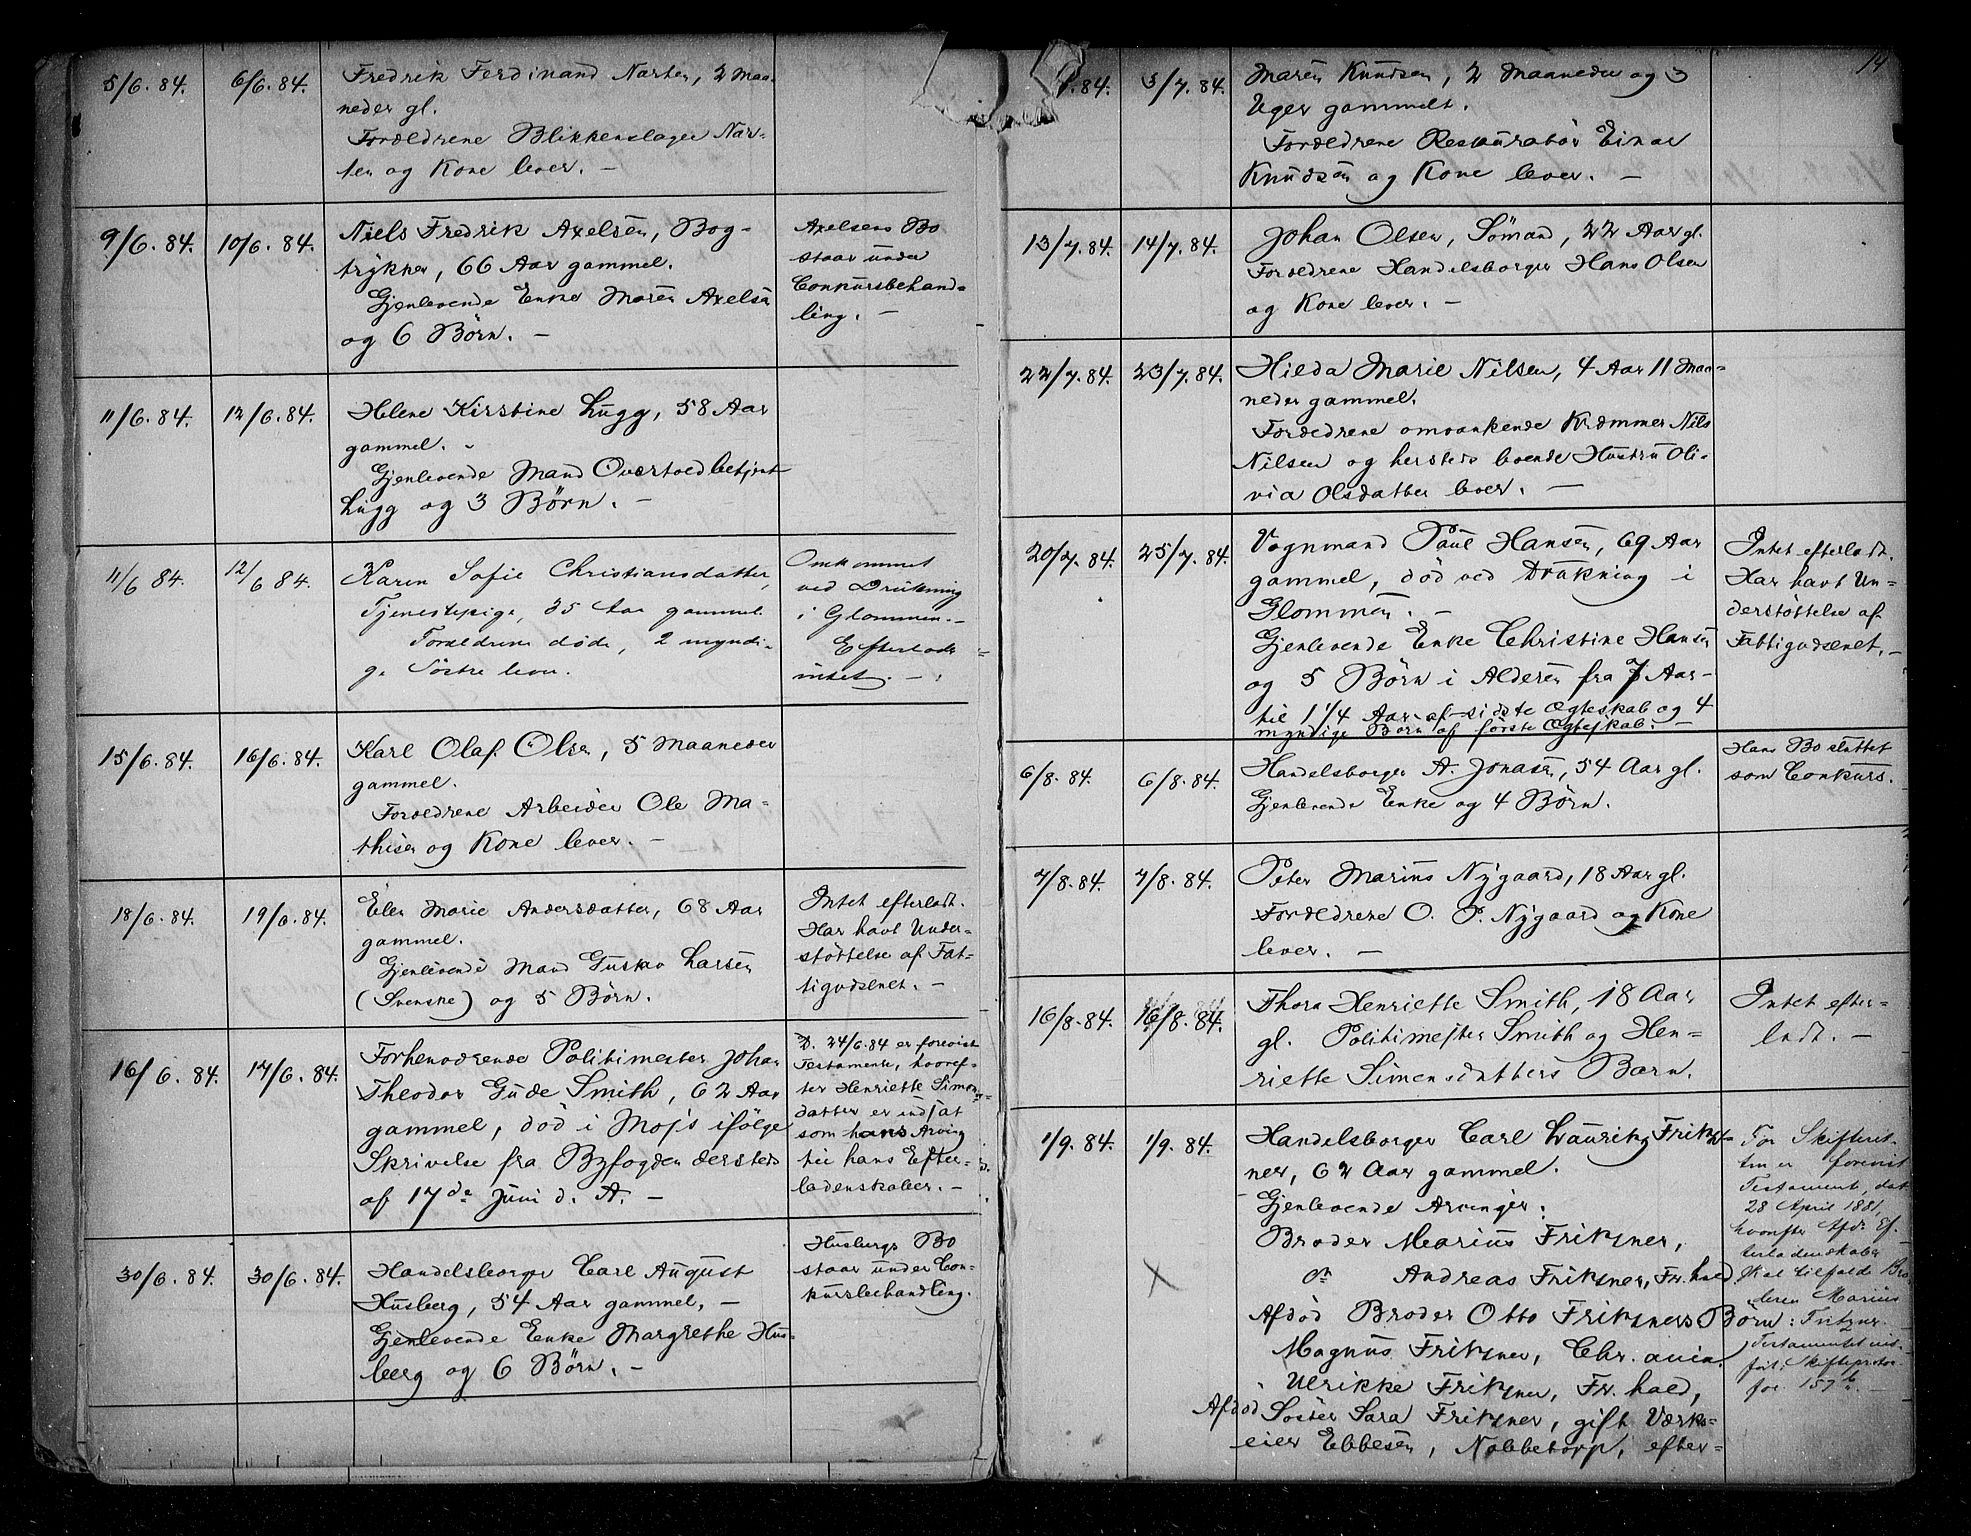 5/6. 84. 6/6. 84. Fredrik Ferdinand Narten, 2 Maa-
neder gl.
Forældrene Blikkenslager Nar-
ten og Kone lever. —
9/6. 84. 10/6. 84. Niels Fredrik Axelsen, Bog-
trykker, 66 Aar gammel.
Gjenlevende Enke Maren Axelsen
og 6 Børn. —
Axelsens Bo
staar under
Conkursbehand-
ling. —
11/6. 84. 12/6. 84. Helene Kirstine Lugg, 58 Aar
gammel.
Gjenlevende Mand Overtoldbetjent
Lugg og 3 Børn. —
11/6 84. 12/6 84. Karen Sofie Christiansdatter,
Tjenestepige, 35 Aar gammel.
Forældrene døde, 2 myndi-
ge Søstre lever.
Omkommet
ved Drukning
i Glommen. —
Efterlader
intet. —
15/6. 84. 16/6. 84. Karl Olaf Olsen, 5 Maaneder
gammel.
Forældrene Arbeider Ole Ma-
thisen og Kone lever. —
18/6. 84. 19/6. 84. Elen Marie Andersdatter, 68 Aar
gammel.
Gjenlevende Mand Gustav Larsen
(Svenske) og 5 Børn.
Intet efterladt.
Har havt Under-
støttelse af Fat-
tigvæsenet. —
16/6. 84. 17/6. 84. Forhenværende Politimester Johan
Theodor Gude Smith, 62 Aar
gammel, død i Moss ifølge
Skrivelse fra Byfogden dersteds
af 17de Juni d. A. —
D. 24/6. 84 er forevist
Testamente, hvoref-
ter Henriette Simens-
datter er indsat
som hans Arving
til hans Efter-
ladenskaber. —
30/6. 84. 30/6. 84. Handelsborger Carl August
Husberg, 54 Aar gammel, —
Gjenlevende Enke Margrethe Hus-
berg og 6 Børn. —
Husbergs Bo
staar under Con-
kursbehandling.
14
84. 3/7. 84. Maren Knudsen, 2 Maaneder og 3
Uger gammelt.
Forældrene Restauratør Einar
Knudsen og Kone lever. —
13/7. 84. 14/7. 84. Johan Olsen, Sømand, 22 Aar gl.
Forældrene Handelsborger Hans Olsen
og Kone lever. —
22/7. 84. 23/7. 84. Hilda Marie Nilsen, 4 Aar 11 Maa-
neder gammel.
Forældrene omvankende Kræmmer Nils
Nilsen og hersteds boende Hustru Oli-
via Olsdatter lever. —
20/7. 84. 25/7. 84. Vognmand Paul Hansen, 69 Aar
gammel, død ved Drukning i
Glommen. —
Gjenlevende Enke Christine Hansen
og 5 Børn i Alderen fra 7 Aar —
til 1 1/4 Aar af sidste Ægteskab og 4
myndige Børn af første Ægteskab. —
Intet efterladt.
Har havt Un-
derstøttelse af
Fattigvæsenet. —
6/8. 84. 6/8. 84. Handelsborger A. Jonasen, 54 Aar gl.
Gjenlevende Enke og 4 Børn.
Hans Bo sluttet
som Conkurs.
7/8. 84. 7/8. 84. Peter Marius Nygaard, 18 Aar gl.
Forældrene O. P. Nygaard og Kone
lever. —
16/8. 84. 16/8. 84. Thora Henriette Smith, 18 Aar
gl. Politimester Smith og Hen-
riette Simensdatters Barn.
Intet efter-
ladt. —
1/9. 84. 1/9. 84. Handelsborger Carl Lauritz Fritz-
ner, 62 Aar gammel.
Gjenlevende Arvinger:
Broder Marius Fritzner,
do Andreas Fritzner, Fr.hald
Afdød Broder Otto Fritzners Børn:
Magnus Fritzner, Chr.ania.
Ulrikke Fritzner, Fr.hald,
Afdød Søster Sara Fritzner, gift Værks-
eier Ebbesen, Nobbetorp, efter-
For Skifteret-
ten er forevist
Testament, dat.
28 April 1881,
hvorefter Afdr. Ef-
terladenskaber
skal tilfalde Bro-
deren Marius
Fritzner. —
Testamentet ind-
ført i Skifteproto-
fol. 157 b. —
X